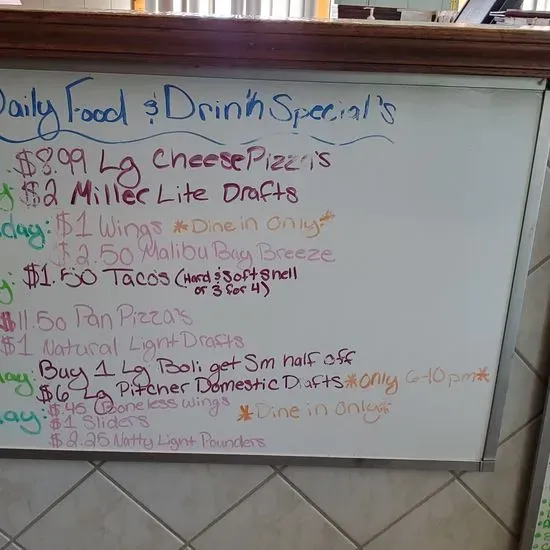 Daily Food & Drink Special's
$8.99 Lg Cheese Pizza's
y: $2 Miller Lite Drafts
day: $1 Wings *Dine in Only*
$2.50 Malibu Bay Breeze
y: $1.50 Tacos (Hard & Soft Shell
or 3 for 4)
$11.50 Pan Pizza's
$1 Natural Light Drafts
day: Buy 1 Lg Boli get Sm half off
$6 Lg Pitcher Domestic Drafts *Only 6-10pm*
day: $.45 Boneless Wings *Dine in Only*
$1 Sliders
$2.25 Natty Light Pounders